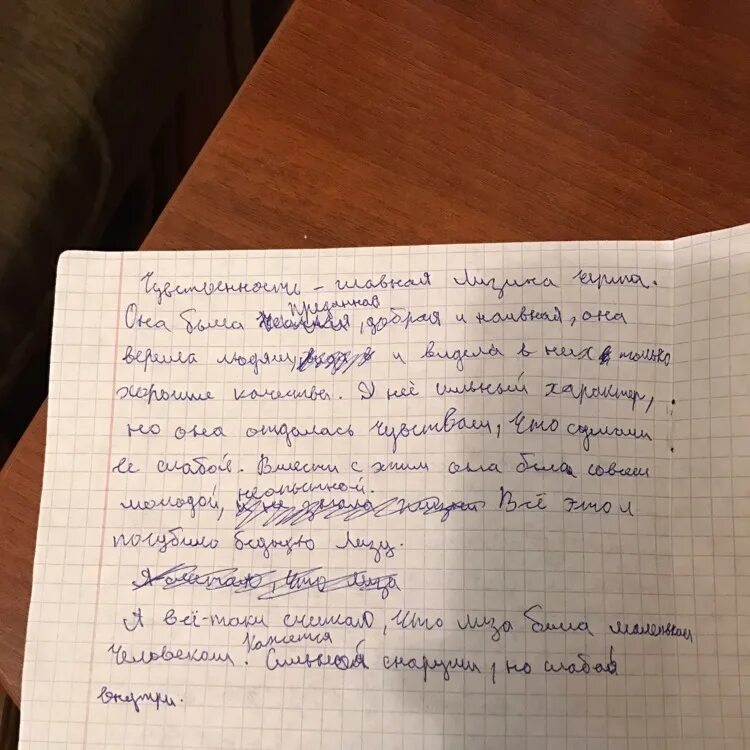 Чувственность – главная Лизина черта.
Она была преданная, добрая и наивная, она
верила людям, и видела в них только
хорошие качества. У неё сильный характер,
но она отдалась чувствам, что сделали
её слабой. Вместе с этим она была совсем
молодой, неопытной. Всё это
погубило бедную Лизу.
Я считаю, что Лиза
Я всё-таки считаю, что Лиза была маленьким
человеком. Кажется сильной снаружи, но слабой
внутри.